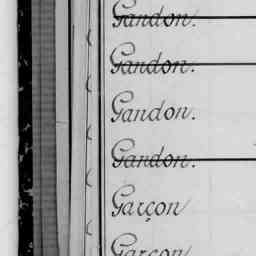 Gandon.
Gandon.
Gandon.
Gandon.
Garçon
Garçon